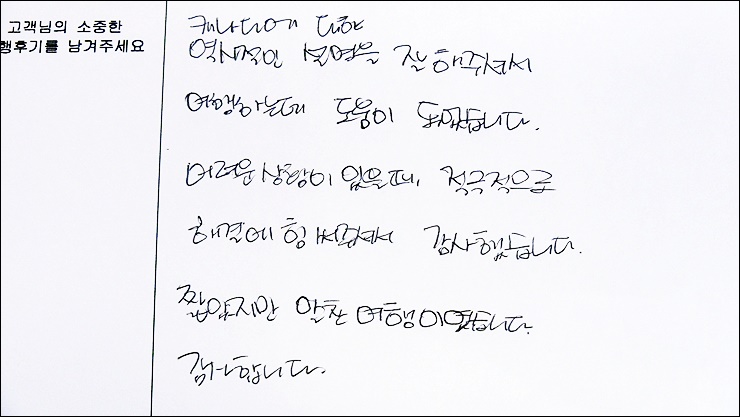 고객님의 소중한
행후기를 남겨주세요
캐나다에 대한
역사적인 설명을 잘 해주셔서
여행하는데 도움이 되었습니다.
어려운 상황이 있을때, 적극적으로
해결에 힘써주셔서 감사했습니다.
짧았지만 알찬 여행이었습니다.
감사합니다.